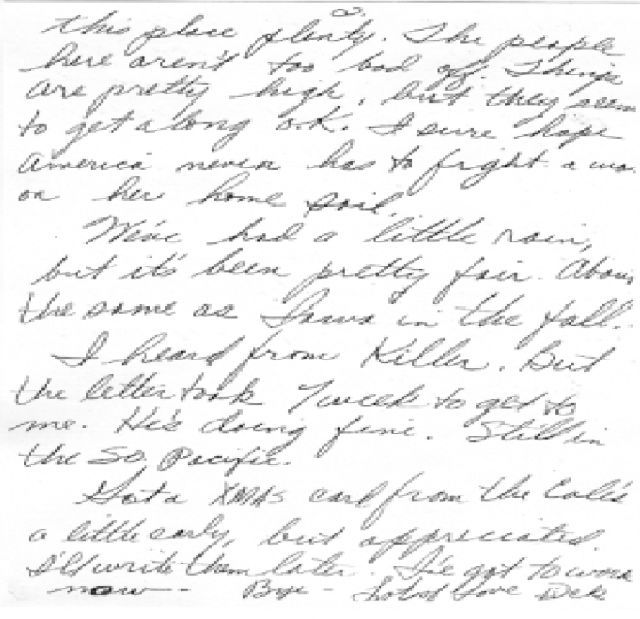 2.
this place plenty. The people
here aren't too bad off. Things
are pretty high, but they seem
to get along o.k. I sure hope
America never has to fight a war
on her home soil.
We've had a little rain,
but it's been pretty fair. About
the same as Iowa in the fall.
I heard from Killer. But
the letter took 7 week to get to
me. He's doing fine. Still in
the So. Pacific.
Got a XMAS card from the Cole's
a little early, but appreciated
I'll write them later. I've got to work
now - Bye - Lots of Love Dek